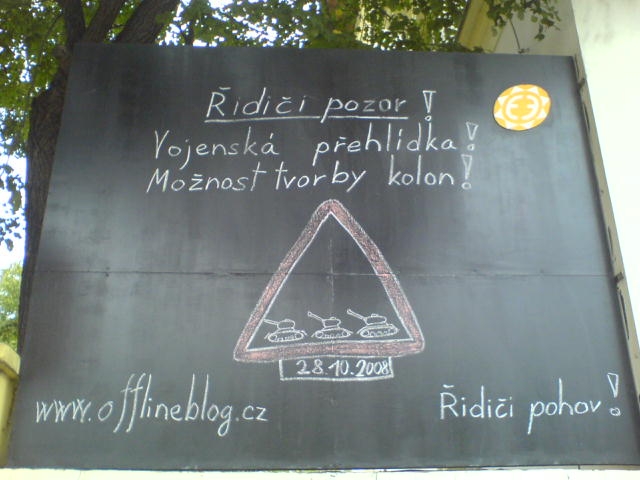 Řidiči pozor!
Vojenská přehlídka!
Možnost tvorby kolon!
28.10.2008
www.offlineblog.cz
Řidiči pohov!